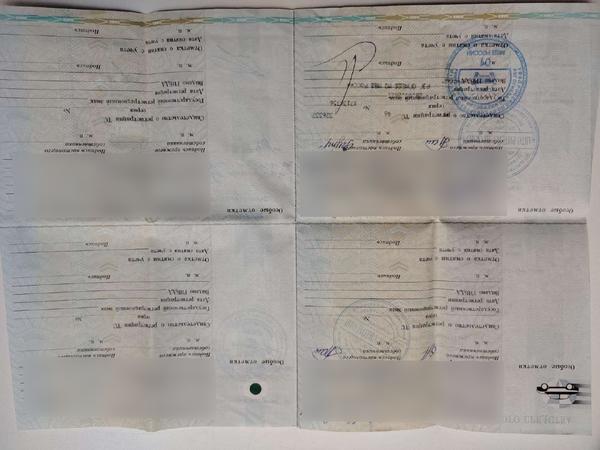 ОГО СРЕДСТВА
Особые отметки
Подпись прежнего
собственника
Подпись настоящего
собственника
М. П.
Свидетельство о регистрации ТС
серия №
Государственный регистрационный знак
Дата регистрации
Выдано ГИБДД
М. П. Подпись
Отметка о снятии с учета
Дата снятия с учета
М. П. Подпись
Особые отметки
Подпись прежнего
собственника
Подпись настоящего
собственника
М. П.
Свидетельство о регистрации ТС
серия №
Государственный регистрационный знак
Дата регистрации
Выдано ГИБДД
М. П. Подпись
Отметка о снятии с учета
Дата снятия с учета
М. П. Подпись
Особые отметки
Подпись прежнего
собственника
Подпись настоящего
собственника
М. П.
Свидетельство о регистрации ТС
серия №
Государственный регистрационный знак
Дата регистрации
Выдано ГИБДД
МВД РОССИИ
Подпись
Отметка о снятии с учета
Дата снятия с учета
М. П. Подпись
Особые отметки
Подпись прежнего
собственника
Подпись настоящего
собственника
М. П.
Свидетельство о регистрации ТС
серия №
Государственный регистрационный знак
Дата регистрации
Выдано ГИБДД
М. П. Подпись
Отметка о снятии с учета
Дата снятия с учета
М. П. Подпись